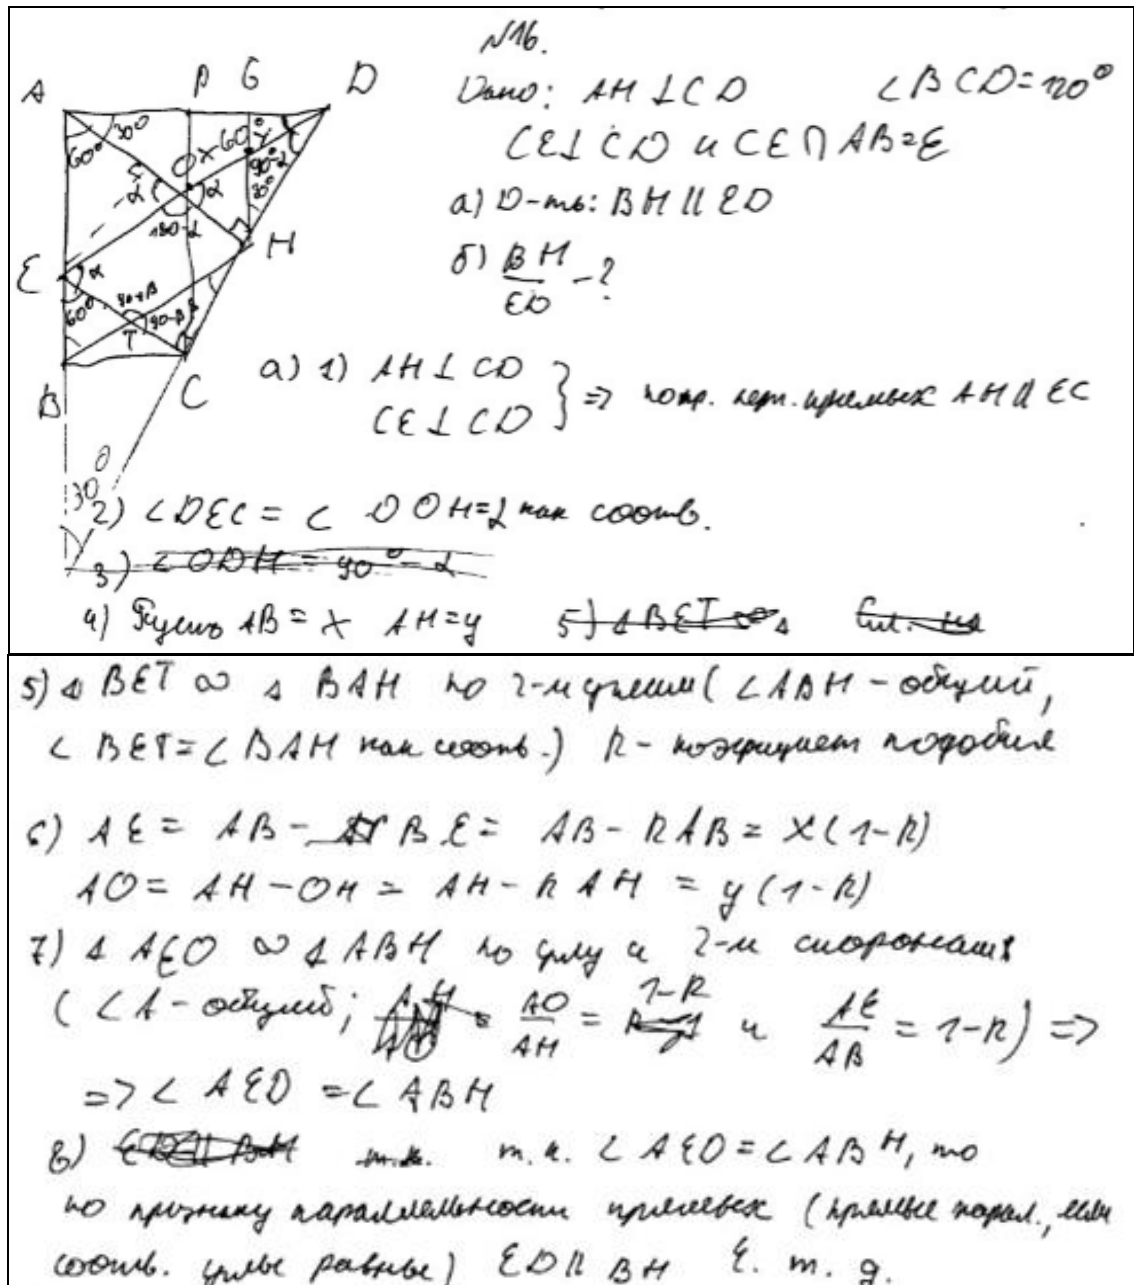 N16.
A P G D
Дано: AH ⊥ CD ∠BCD = 120°
CE ⊥ CD и CE ∩ AB = E
а) D-ть: BH || ED
б) BH/ED - ?
30° 60° O X 60° 90-α 30°
α α 180-α
E α H
60° 90+β 90-β β
T
B C
30°
а) 1) AH ⊥ CD
CE ⊥ CD } => по пр. пер. прямых AH || EC
2) ∠DEC = ∠DOH = α как соотв.
3) ∠ODH = 90° - α
4) Пусть AB = x AH = y 5) ΔBET ∞ Δ
5) Δ BET ∞ Δ BAH по 2-м углам (∠ABH - общий,
∠BET = ∠BAH как соотв.) R - коэффициент подобия
6) AE = AB - BE = AB - RAB = x(1-R)
AO = AH - OH = AH - RAH = y(1-R)
7) Δ AEO ∞ Δ ABH по углу и 2-м сторонам
(∠A - общий; AO/AH = 1-R и AE/AB = 1-R) =>
=> ∠AED = ∠ABH
8) ED || BH т.к. т.к. ∠AED = ∠ABH, то
по признаку параллельности прямых (прямые парал., если
соотв. углы равны) ED || BH Ч. т. д.